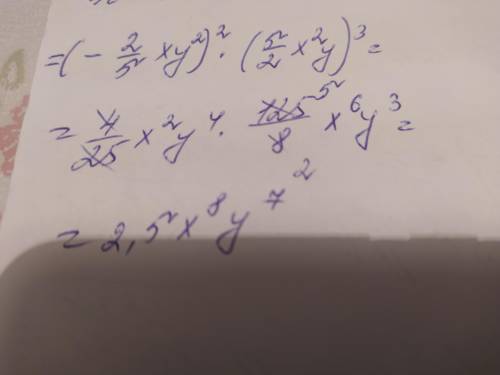 =(- 2/5 xy²)² · (5/2 x²y)³ =
= 4/25 x²y⁴ · 125/8 ⁵ x⁶y³ =
2
= 2,5 x⁸y⁷